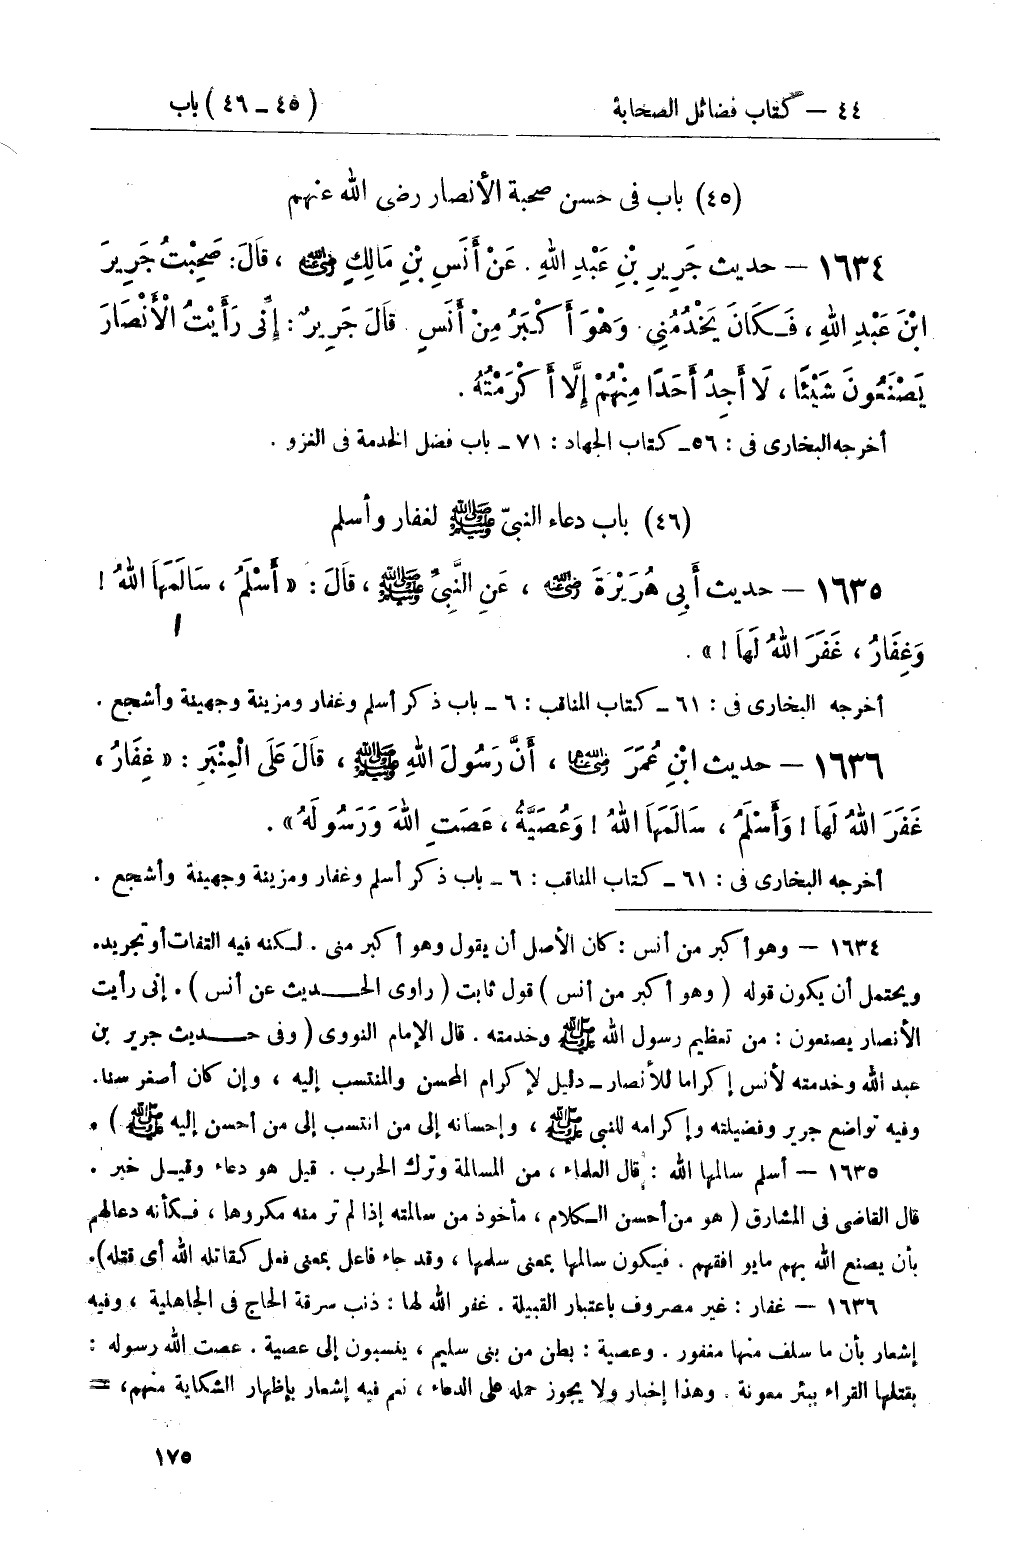 ٤٤ – كتاب فضائل الصحابة (٤٥ – ٤٦) باب
(٤٥) باب فى حسن صحبة الأنصار رضى الله عنهم
١٦٣٤ – حديث جَرِيرِ بْنِ عَبْدِ اللهِ. عَنْ أَنَسِ بْنِ مَالِكٍ رضي الله عنه ، قَالَ: صَحِبْتُ جَرِيرَ
ابْنَ عَبْدِ اللهِ ، فَكَانَ يَخْدُمُنِي. وَهْوَ أَكْبَرُ مِنْ أَنَسٍ. قَالَ جَرِيرٌ : إِنِّى رَأَيْتُ الْأَنْصَارَ
يَصْنَعُونَ شَيْئًا ، لَا أَجِدُ أَحَدًا مِنْهُمْ إِلَّا أَكْرَمْتُهُ.
أخرجه البخارى فى : ٥٦ – كتاب الجهاد : ٧١ – باب فضل الخدمة فى الغزو .
(٤٦) باب دعاء النبىّ ﷺ لغفار وأسلم
١٦٣٥ – حديث أَبِى هُرَيْرَةَ رضي الله عنه ، عَنِ النَّبِىِّ ﷺ ، قَالَ : « أَسْلَمُ ، سَالَمَهَا اللهُ !
وَغِفَارُ ، غَفَرَ اللهُ لَهَا ! » .
أخرجه البخارى فى : ٦١ – كتاب المناقب : ٦ – باب ذكر أسلم وغفار ومزينة وجهينة وأشجع .
١٦٣٦ – حديث ابْنِ عُمَرَ رضي الله عنهما ، أَنَّ رَسُولَ اللهِ ﷺ ، قَالَ عَلَى الْمِنْبَرِ : « غِفَارُ ،
غَفَرَ اللهُ لَهَا ! وَأَسْلَمُ ، سَالَمَهَا اللهُ ! وَعُصَيَّةُ ، عَصَتِ اللهَ وَرَسُولَهُ » .
أخرجه البخارى فى : ٦١ – كتاب المناقب : ٦ – باب ذكر أسلم وغفار ومزينة وجهينة وأشجع .
١٦٣٤ – وهو أكبر من أنس : كان الأصل أن يقول وهو أكبر منى . لكنه فيه التفات أو تجريد.
ويحتمل أن يكون قوله ( وهو أكبر من أنس ) قول ثابت ( راوى الحديث عن أنس ) . إنى رأيت
الأنصار يصنعون : من تعظيم رسول الله ﷺ وخدمته . قال الإمام النووى ( وفى حديث جرير بن
عبد الله وخدمته لأنس إكراما للأنصار – دليل لإكرام المحسن والمنتسب إليه ، وإن كان أصغر سنا.
وفيه تواضع جرير وفضيلته وإكرامه للنبى ﷺ ، وإحسانه إلى من انتسب إلى من أحسن إليه ﷺ ) .
١٦٣٥ – أسلم سالمها الله : قال العلماء ، من المسالمة وترك الحرب . قيل هو دعاء وقيل خبر .
قال القاضى فى المشارق ( هو من أحسن الكلام ، مأخوذ من سالمته إذا لم تر منه مكروها ، فكأنه دعا لهم
بأن يصنع الله بهم ما يوافقهم . فيكون سالمها بمعنى سلمها ، وقد جاء فاعل بمعنى فعل كقاتله الله أى قتله).
١٦٣٦ – غفار : غير مصروف باعتبار القبيلة . غفر الله لها : ذنب سرقة الحاج فى الجاهلية ، وفيه
إشعار بأن ما سلف منها مغفور . وعصية : بطن من بنى سليم ، ينسبون إلى عصية . عصت الله رسوله :
بقتلها القراء ببئر معونة . وهذا إخبار ولا يجوز حمله على الدعاء ، نعم فيه إشعار بإظهار الشكاية منهم، =
١٧٥